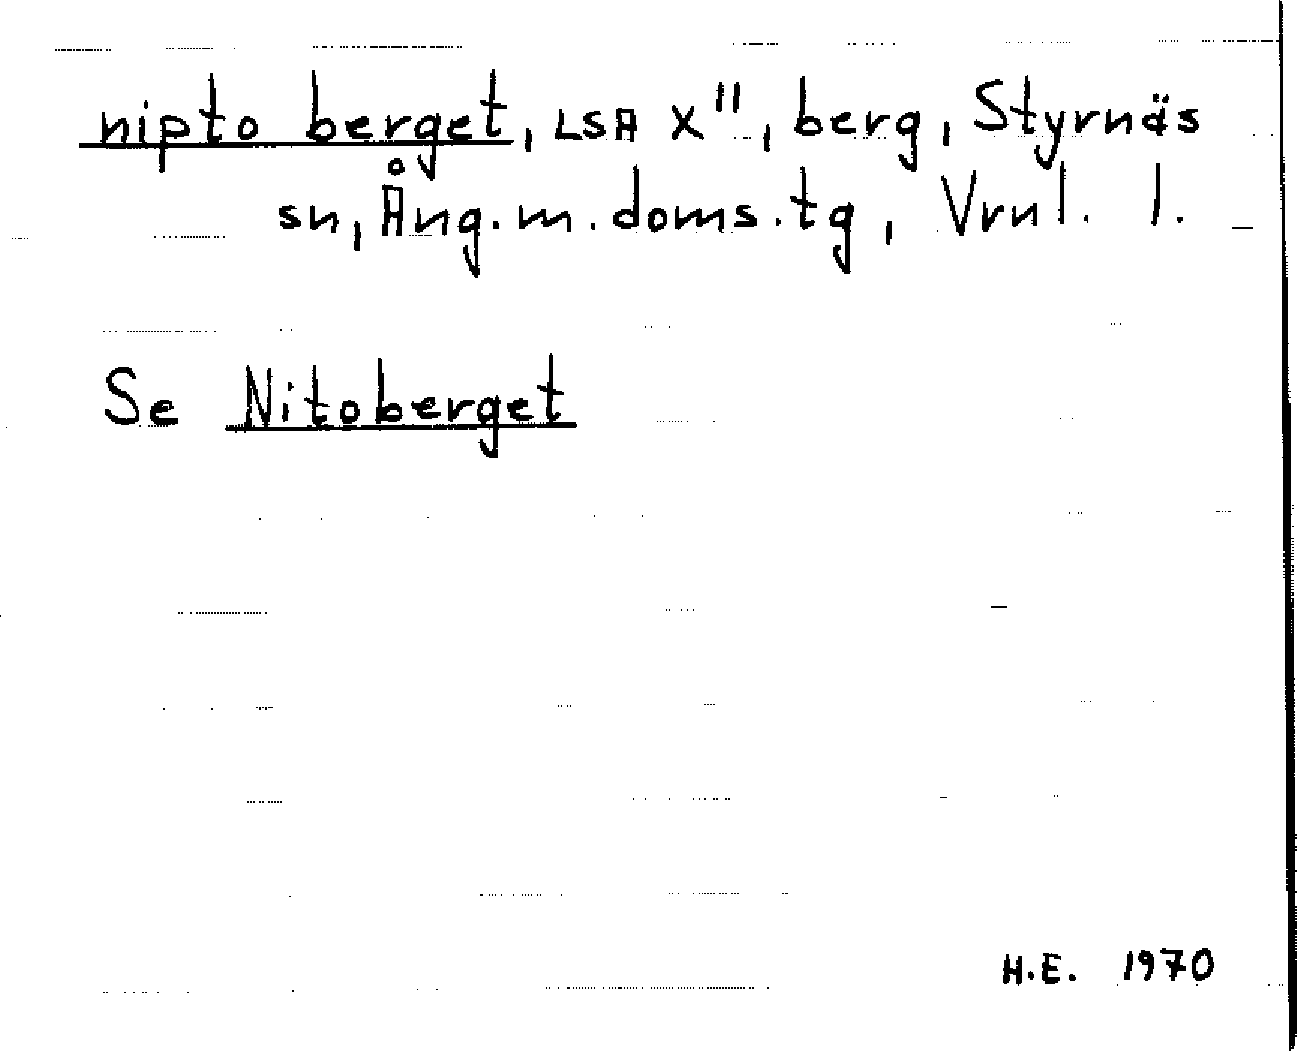 nipto berget, LSA X", berg, Styrnäs
sn, Ång.m.doms.tg, Vrnl. l.
Se Nitoberget
H.E. 1970